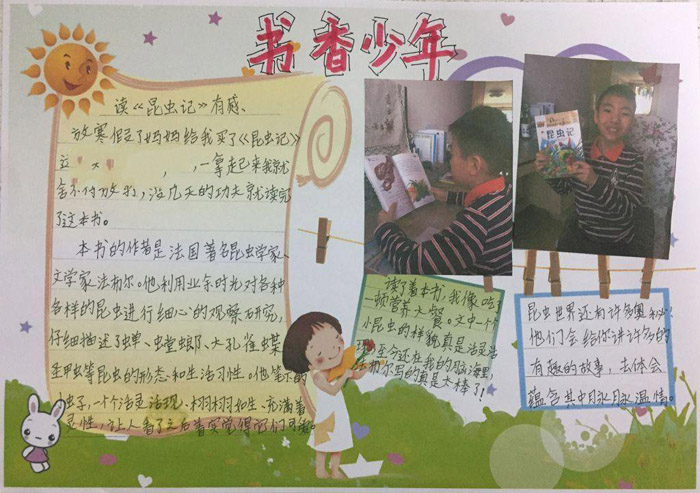 书香少年
读《昆虫记》有感、
放寒假了妈妈给我买了《昆虫记》
这 ，一拿起来我就
舍不得放手，没几天的功夫就读完
了这本书。
本书的作者是法国著名昆虫学家、
文学家法布尔。他利用业余时光对各种
各样的昆虫进行细心的观察研究，
仔细描述了蝉、虫螳螂、大孔雀蝶
生甲虫等昆虫的形态和生活习性。他笔下的
虫子，一个个活灵活现、栩栩如生、充满着
灵性，让人看了之后着实觉得它们可爱。
昆虫记
读了着本书，我像吃了
一顿营养大餐。文中一个
小昆虫的样貌真是活灵活
现至今还在我的脑海里，
法布尔写的真是大棒了！
昆虫世界还有许多奥秘，
他们会给你讲许多的
有趣的故事，去体会
蕴含其中脉脉温情。